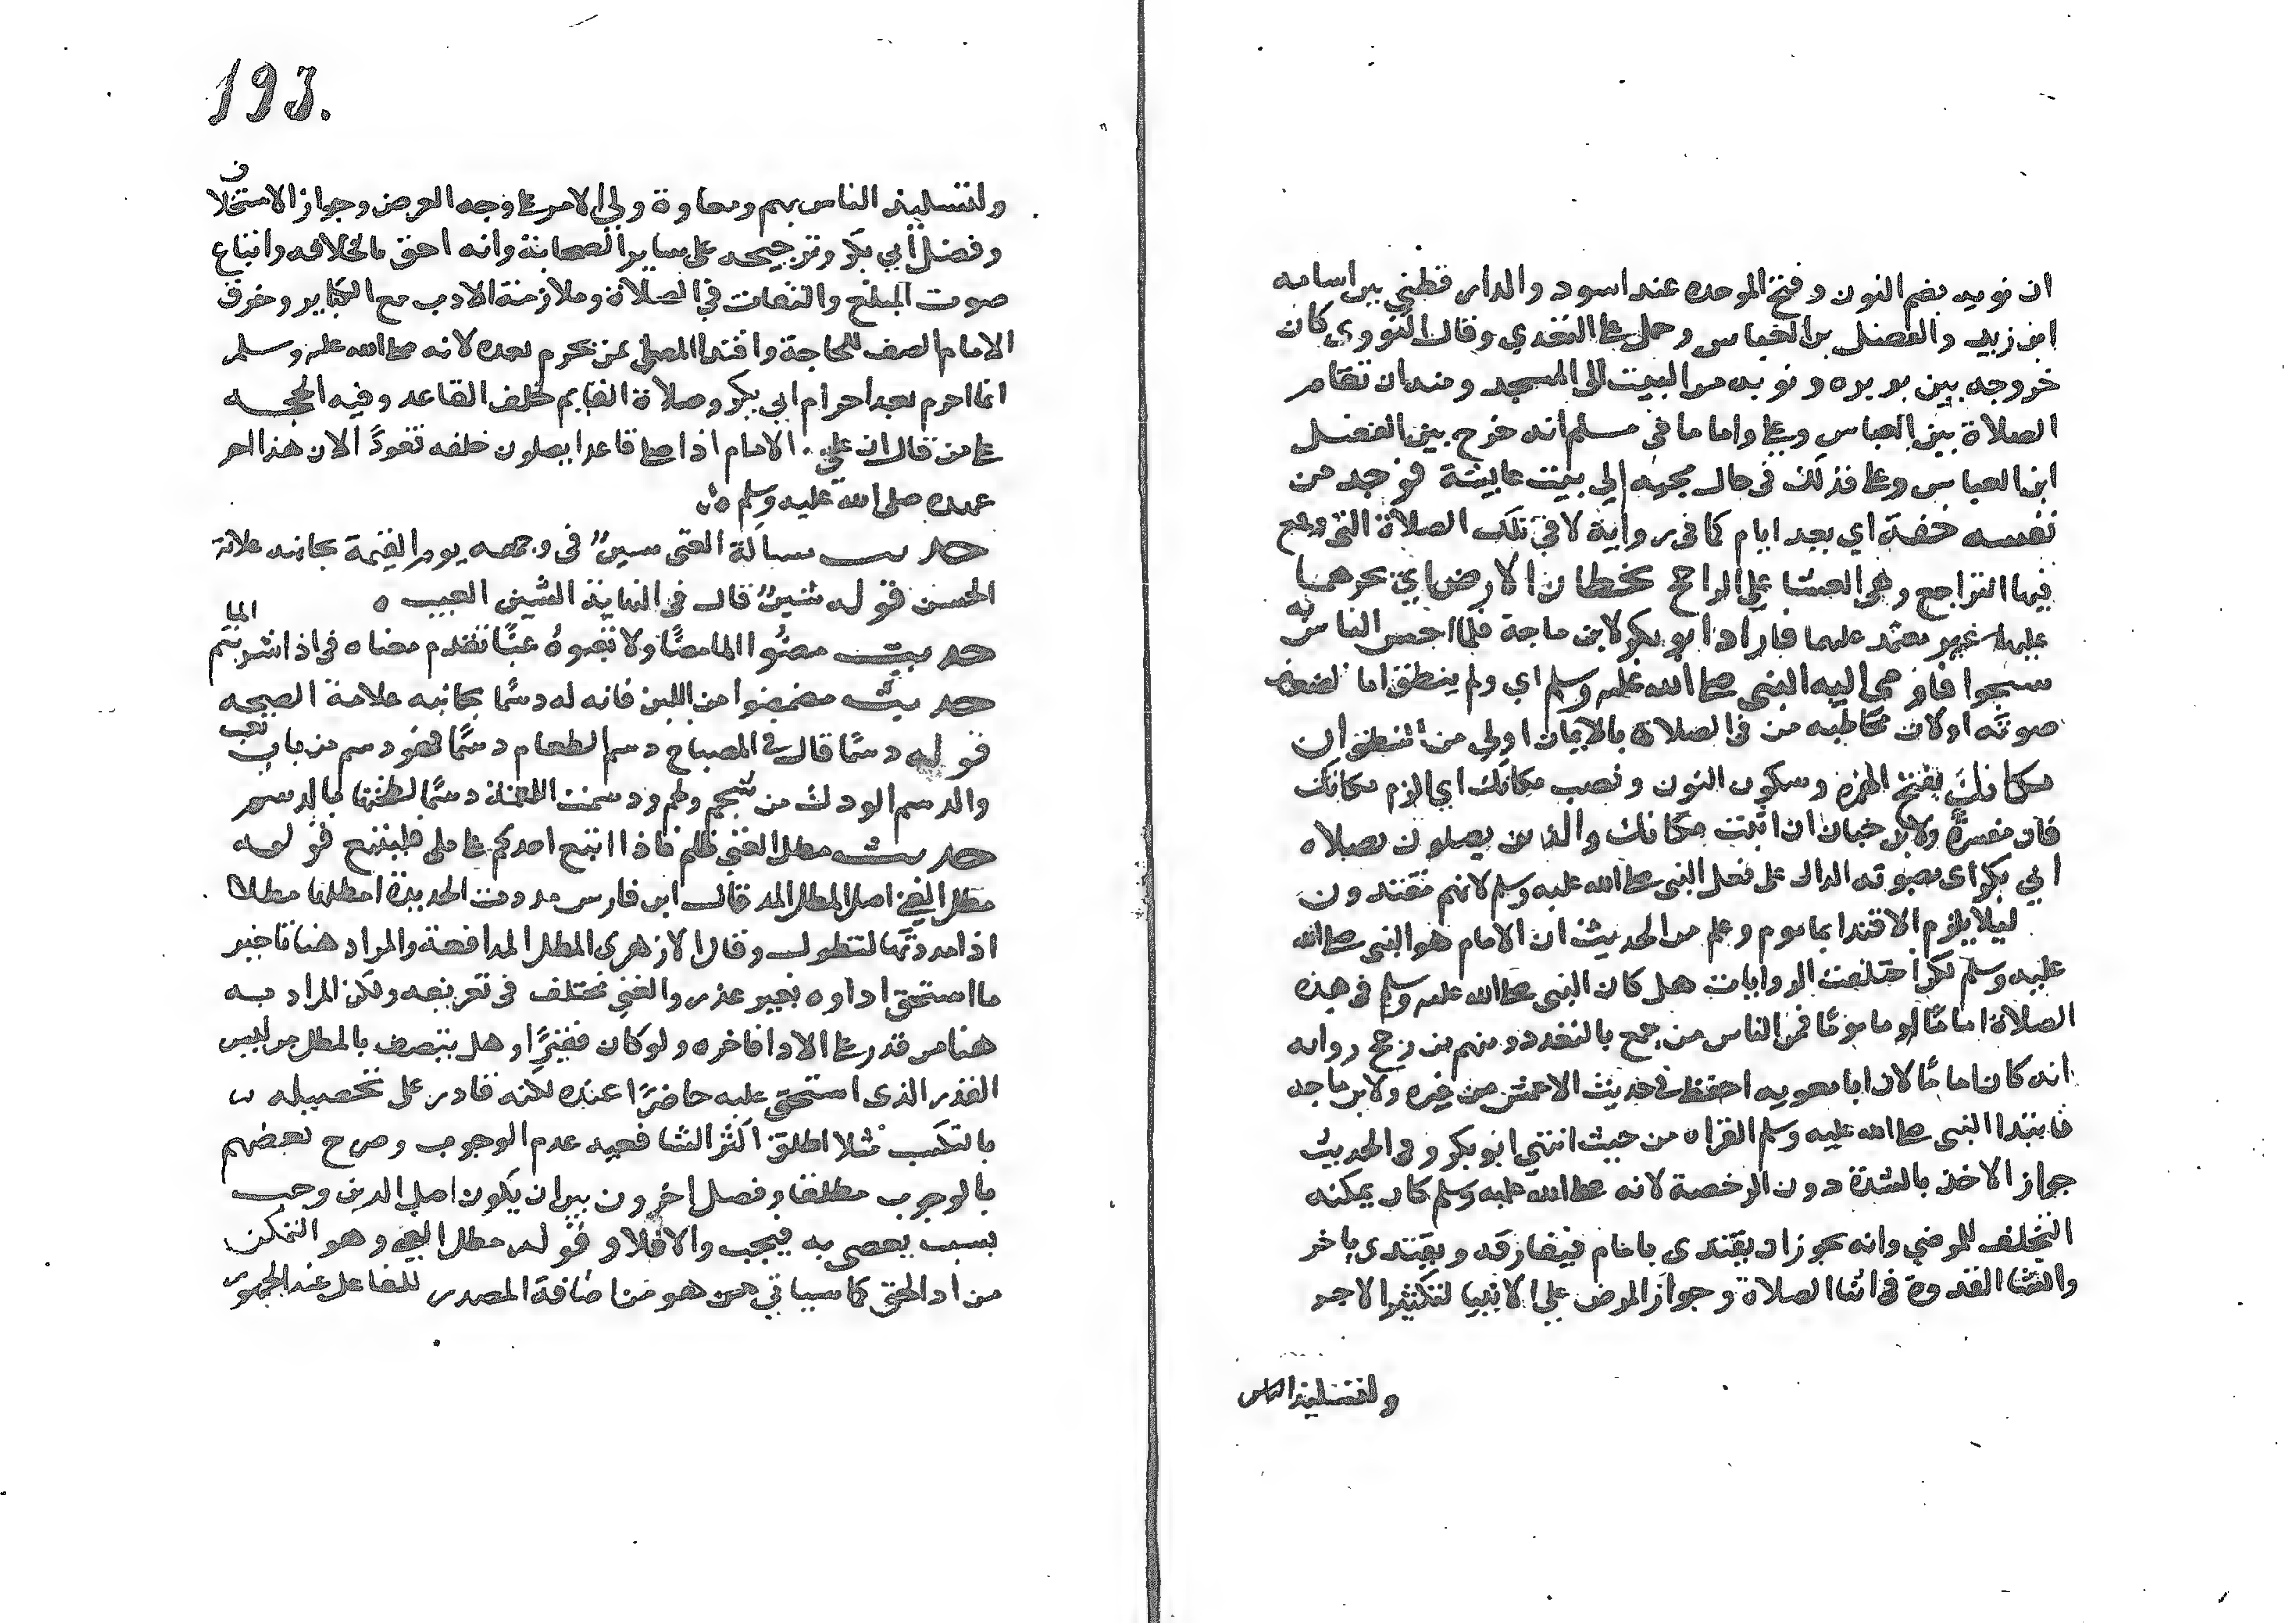 ان نوبه بضم النون وفتح الموحده عند اسود والدار قطني بين اسامه
ابن زيد والفضل بن العباس وحمل على التعدي وقال النووي كان
خروجه بين بريره ونوبه من البيت الى المسجد ومنه ان تقام
الصلاة بين العباس وعلي واما ما في مسلم انه خرج بين الفضل
ابن العباس وعلي فذلك في حال مجيئه الي بيت عايشة فوجد من
نفسه خفة اي بعد ايام كما في رواية لا في تلك الصلاة التي وقع
فيها التراجع وهي العشا علي الراجح تخطان الارض اي بجرهما
عليها غير معتمد عليهما فاراد ابو بكر لابن ماجة فلما احس الناس به
سبحوا فاومى اليه النبي صلى الله عليه وسلم اي ولم ينطق اما لضعف
صوته او لان مخاطبه من في الصلاة بالايمان اولي من النطق ان
مكانك بفتح الهمزة وسكون النون ونصب مكانك اي الزم مكانك
فان مفسرة ولابن حبان ان اثبت مكانك والناس يصلون بصلاه
ابي بكر اى بصوته الدال على فعل النبي صلى الله عليه وسلم لانهم مقتدون
ليلا يلزم الاقتدا بماموم وعلم من الحديث ان الامام هو النبي صلى الله
عليه وسلم لكن اختلفت الروايات هل كان النبي صلى الله عليه وسلم في هذه
الصلاة اماما او ماموما فمن الناس من جمع بالتعدد ومنهم من رجح روايه
انه كان اماما لان ابا معويه احفظ في حديث الاعمش من غيره ولابن ماجه
فابتدا النبي صلى الله عليه وسلم القراه من حيث انتهي ابو بكر وفي الحديث
جواز الاخذ بالشدة دون الرخصة لانه صلى الله عليه وسلم كان يمكنه
التخلف للمرض وانه يجوز ان يقتدى بامام فيفارقه ويقتدى باخر
وانشا القدوة في اثنا الصلاة وجواز المرض علي الانبيا لتكثير الاجر
ولتسلية الناس
193.
ولتسلية الناس بهم ومعاوة ولي الامر على وجه العرض وجواز الاستخلاف
وفضل ابي بكر وترجيحه على ساير الصحابة وانه احق بالخلافه واتباع
صوت المبلغ والتفات في الصلاة وملازمة الادب مع الكباير وخرق
الامام الصف للحاجة واقتدا المصلي بمن يحرم بعده لانه صلى الله عليه وسلم
انما احرم بعد احرام ابي بكر وصلاة القايم خلف القاعد وفيه الحجه
على من قال ان علي الامام اذا صلى قاعدا يصلون خلفه قعودا الان هذا اخر
عهده صلى الله عليه وسلم
حديث مسالة الغني شين في وجهه يوم القيمة بجانبه علامة
الحسن قوله شين قال في النهاية الشين العيب ه
حديث مصوا الماء مصا ولا تعبوه عبا تقدم معناه في اذا شربتم الما
حديث مضمضوا من اللبن فانه له دسما بجانبه علامة الصحه
قوله دسما قال في المصباح دسم الطعام دسما فهو دسم من باب تعب
والدسم الودك من شحم ولحم ودسمت اللقمة دسما لطختها بالدسم
حديث مطل الغني ظلم فاذا اتبع احدكم على ملي فليتبع قوله
مطل الغني اصل المطل المد قال ابن فارس مددت الحديدة امطلها مطلا
اذا مددتها لتطول وقال الازهري المطل المدافعة والمراد هنا تاخير
ما استحق اداوه بغير عذر والغني مختلف في تعريفه ولكن المراد به
هنا من قدر على الادا فاخره ولو كان فقيرا وهل يتصف بالمطل من ليس
القدر الذى استحق عليه حاضرا عنده لكنه قادر على تحصيله
بالتكسب مثلا اطلق اكثر الشافعيه عدم الوجوب وصرح بعضهم
بالوجوب مطلقا وفصل اخرون بين ان يكون اصل الدين وجب
بسبب يعصي به فيجب والا فلا وقوله مطل الغني وهو التمكن
من اد الحق كما سياتي هو من اضافة المصدر للفاعل عند الجمهور